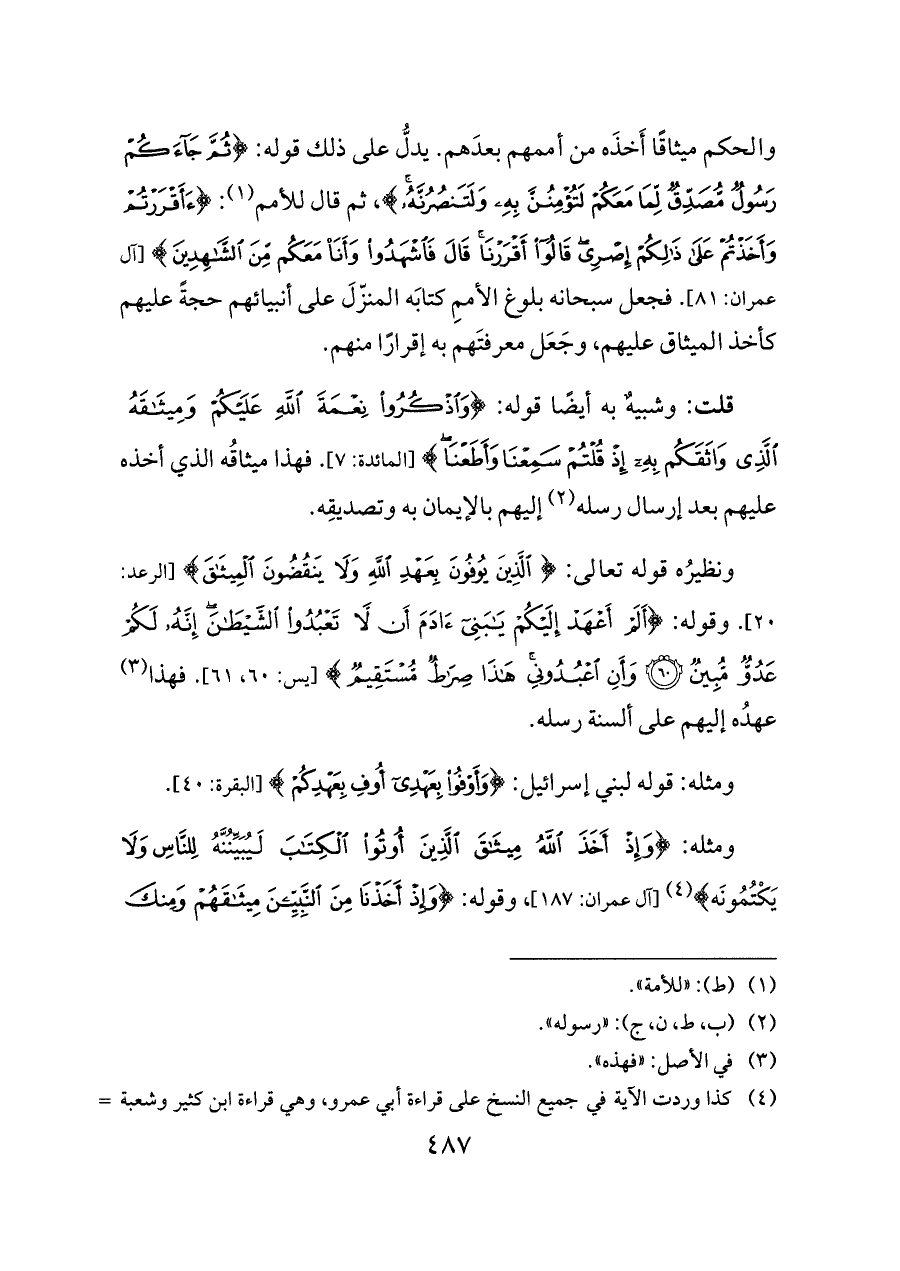 والحكم ميثاقًا أَخذَه من أممهم بعدَهم. يدلُّ على ذلك قوله: ﴿ثُمَّ جَآءَكُمۡ
رَسُولٞ مُّصَدِّقٞ لِّمَا مَعَكُمۡ لَتُؤۡمِنُنَّ بِهِۦ وَلَتَنصُرُنَّهُۥۚ﴾، ثم قال للأمم(١): ﴿ءَأَقۡرَرۡتُمۡ
وَأَخَذۡتُمۡ عَلَىٰ ذَٰلِكُمۡ إِصۡرِيۖ قَالُوٓاْ أَقۡرَرۡنَاۚ قَالَ فَٱشۡهَدُواْ وَأَنَا۠ مَعَكُم مِّنَ ٱلشَّٰهِدِينَ﴾ [آل
عمران: ٨١]. فجعل سبحانه بلوغ الأممِ كتابَه المنزّلَ على أنبيائهم حجةً عليهم
كأخذ الميثاق عليهم، وجَعَل معرفتَهم به إقرارًا منهم.
قلت: وشبيهٌ به أيضًا قوله: ﴿وَٱذۡكُرُواْ نِعۡمَةَ ٱللَّهِ عَلَيۡكُمۡ وَمِيثَٰقَهُ
ٱلَّذِي وَاثَقَكُم بِهِۦٓ إِذۡ قُلۡتُمۡ سَمِعۡنَا وَأَطَعۡنَاۖ﴾ [المائدة: ٧]. فهذا ميثاقُه الذي أخذه
عليهم بعد إرسال رسله(٢) إليهم بالإيمان به وتصديقِه.
ونظيرُه قوله تعالى: ﴿ٱلَّذِينَ يُوفُونَ بِعَهۡدِ ٱللَّهِ وَلَا يَنقُضُونَ ٱلۡمِيثَٰقَ﴾ [الرعد:
٢٠]. وقوله: ﴿أَلَمۡ أَعۡهَدۡ إِلَيۡكُمۡ يَٰبَنِيٓ ءَادَمَ أَن لَّا تَعۡبُدُواْ ٱلشَّيۡطَٰنَۖ إِنَّهُۥ لَكُمۡ
عَدُوّٞ مُّبِينٞ ۝٦٠ وَأَنِ ٱعۡبُدُونِيۚ هَٰذَا صِرَٰطٞ مُّسۡتَقِيمٞ﴾ [يس: ٦٠، ٦١]. فهذا(٣)
عهدُه إليهم على ألسنة رسله.
ومثله: قوله لبني إسرائيل: ﴿وَأَوۡفُواْ بِعَهۡدِيٓ أُوفِ بِعَهۡدِكُمۡ﴾ [البقرة: ٤٠].
ومثله: ﴿وَإِذۡ أَخَذَ ٱللَّهُ مِيثَٰقَ ٱلَّذِينَ أُوتُواْ ٱلۡكِتَٰبَ لَيُبَيِّنُنَّهُ لِلنَّاسِ وَلَا
يَكۡتُمُونَه﴾(٤) [آل عمران: ١٨٧]، وقوله: ﴿وَإِذۡ أَخَذۡنَا مِنَ ٱلنَّبِيِّـۧنَ مِيثَٰقَهُمۡ وَمِنكَ
(١) (ط): «للأمة».
(٢) (ب، ط، ن، ج): «رسوله».
(٣) في الأصل: «فهذه».
(٤) كذا وردت الآية في جميع النسخ على قراءة أبي عمرو، وهي قراءة ابن كثير وشعبة =
٤٨٧